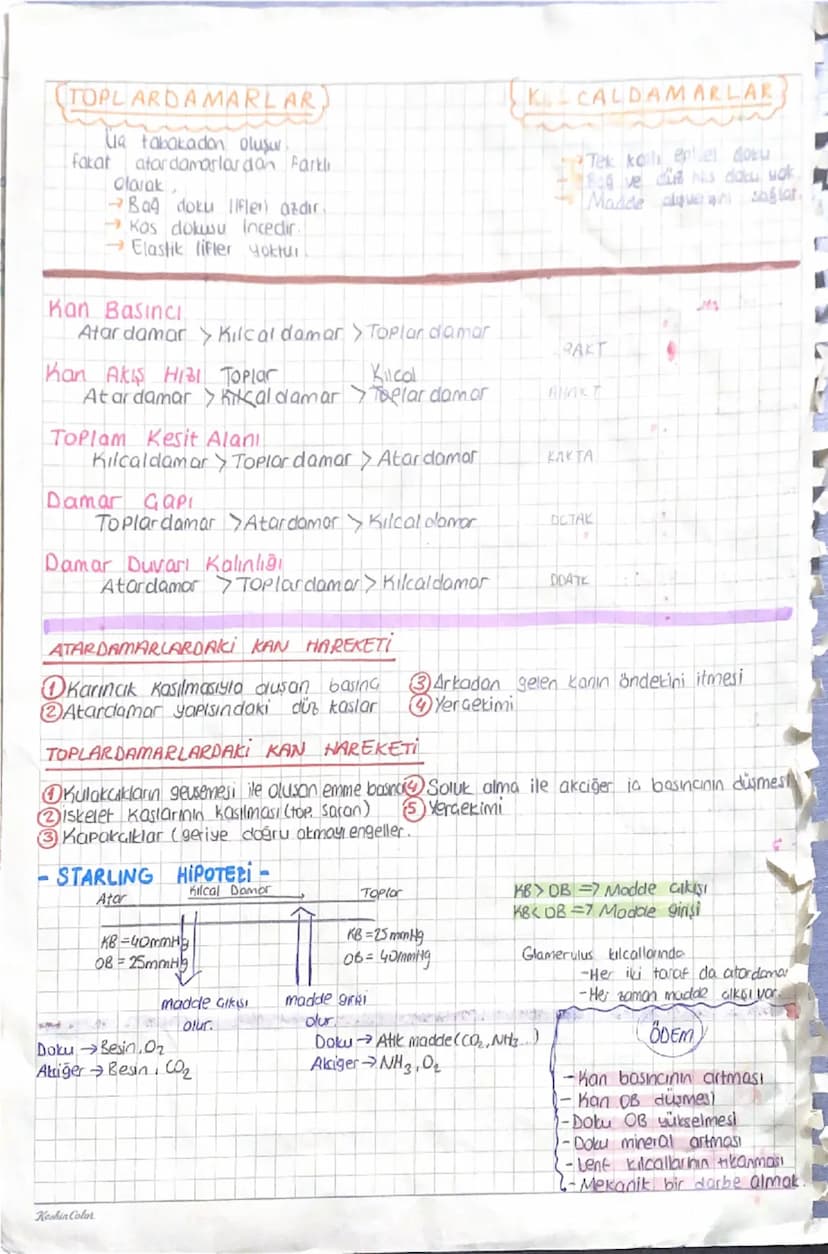 TOPLARDAMARLAR
Üç tabakadan oluşur.
fakat atardamarlardan farklı
olarak,
→ Bağ doku lifleri azdır.
→ Kas dokusu incedir.
→ Elastik lifler yoktur.
KILCALDAMARLAR
Tek katlı epitel doku
Bağ ve düz kas doku yok.
Madde alışverişini sağlar.
Kan Basıncı
Atardamar > Kılcaldamar > Toplardamar
PAKT
Kan Akış Hızı Toplar Kılcal
Atardamar > Kılcaldamar > Toplardamar
Toplam Kesit Alanı
Kılcaldamar > Toplardamar > Atardamar
KAKTA
Damar Çapı
Toplardamar > Atardamar > Kılcaldamar
DÇTAK
Damar Duvarı Kalınlığı
Atardamar > Toplardamar > Kılcaldamar
DDATK
ATARDAMARLARDAKİ KAN HAREKETİ
① Karıncık kasılmasıyla oluşan basınç
② Atardamar yapısındaki düz kaslar
③ Arkadan gelen kanın öndekini itmesi
④ Yerçekimi
TOPLARDAMARLARDAKİ KAN HAREKETİ
① Kulakçıkların gevşemesi ile oluşan emme basıncı
② İskelet kaslarının kasılması (top. saran)
③ Kapakçıklar (geriye doğru akmayı engeller.
④ Soluk alma ile akciğer iç basıncının düşmesi
⑤ Yerçekimi
- STARLING HİPOTEZİ -
Atar Kılcal Damar Toplar
KB = 40mmHg
OB = 25mmHg
KB = 25 mmHg
OB = 40mmHg
madde çıkışı
olur.
madde girişi
olur.
Doku → Besin, O₂
Akciğer → Besin, CO₂
Doku → Atık madde (CO₂, NH₃...)
Akciger → NH₃, O₂
KB > OB => Madde çıkışı
KB < OB => Madde girişi
Glamerulus kılcallarında
-Her iki taraf da atardamar
-Her zaman madde çıkışı var.
ÖDEM
- Kan basıncının artması
- Kan OB düşmesi
- Doku OB yükselmesi
- Doku mineral artması
- Lenf kılcallarının tıkanması
- Mekanik bir darbe almak.
KeskinColor